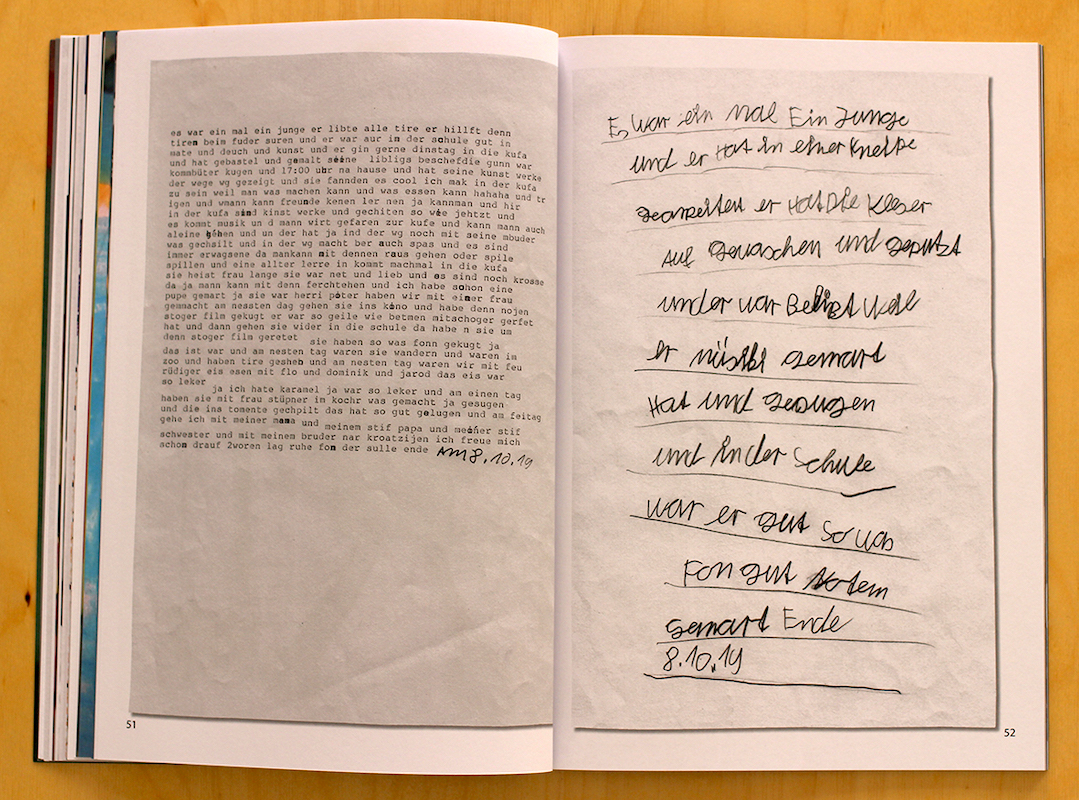 es war ein mal ein junge er libte alle tire er hillft denn
tiren beim fuder suren und er war aur im der schule gut in
mate und deuch und kunst und er gin gerne dinstag in die kufa
und hat gebastel und gemalt seine libligs beschefdie gunn war
kommbüter kugen und 17:00 uhr na hause und hat seine kunst werke
der wege wg gezeigt und sie fannden es cool ich mak in der kufa
zu sein weil man was machen kann und was essen kann hahaha und tr
igen und vmann kann freunde kenen ler nen ja kannman und hir
in der kufa sind kinst werke und gechiten so wie jehtzt und
es kommt musik un d mann wirt gefaren zur kufe und kann mann auch
aleine gehen und un der hat ja ind der wg noch mit seine mbuder
was gechsilt und in der wg macht ber auch spas und es sind
immer erwagsene da mankann mit dennen raus gehen oder spile
spillen und eine allter lerre in kommt machmal in die kufa
sie heist frau lange sie war net und lieb und es sind noch krosse
da ja mann kann mit denn ferchtehen und ich habe schon eine
pupe gemart ja sie war herri poter haben wir mit einer frau
gemmacht am nessten dag gehen sie ins kino und habe denn nojen
stoger film gekugt er war so geile wie betmen mitschoger gerfet
hat und dann gehen sie wider in die schule da habe n sie um
denn stoger film geretet sie haben so was fonn gekugt ja
das ist war und am nesten tag waren sie wandern und waren im
zoo und haben tire gesheb und am nesten tag waren wir mit feu
rüdiger eis esen mit flo und dominik und jarod das eis war
so leker
ja ich hate karamel ja war so leker und am einen tag
haben sie mit frau stüpner im kochr was gemacht ja gesugen
und die ins tomente gechpilt das hat so gut gelugen und am feitag
gehe ich mit meiner mama und meinem stif papa und meiner stif
schwester und mit meinem bruder nar kroatzijen ich freue mich
schon drauf 2woren lag ruhe fon der sulle ende AM 8.10.19
51
Es war ein mal Ein Junge
und er Hat in einer Kneipe
gearbeitet er Hat Die kleser
auf gewaschen und geputzt
und er war Beliebt weil
er müsikt gemart
Hat und gesugen
und in der Schule
war er gut So was
Fon gut Notem
gemart Ende
8.10.19
52